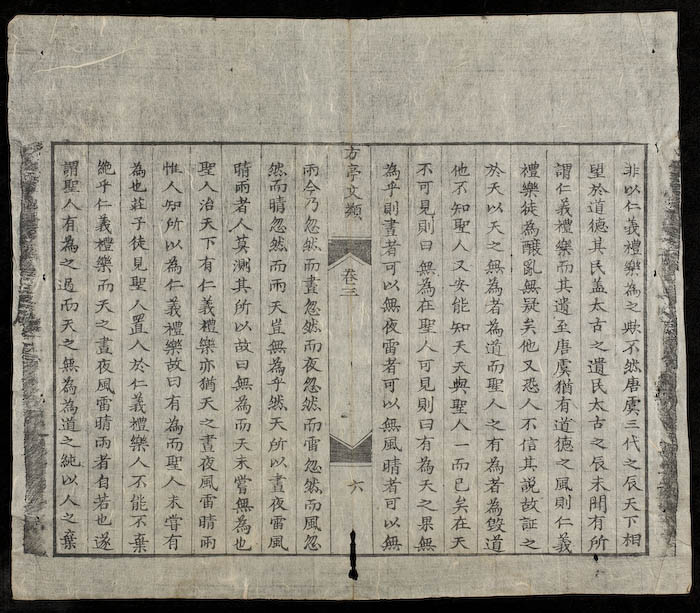 非以仁義禮樂為之歟不然唐虞三代之辰天下相
望於道德其民盖太古之遺民太古之辰未聞有所
謂仁義禮樂而其遺至唐虞猶有道德之風則仁義
禮樂徒為釀亂無疑矣他又恐人不信其説故証之
於天以天之無為者為道而聖人之有為者為毀道
他不知聖人又安能知天天與聖人一而已矣在天
不可見則曰無為在聖人可見則曰有為天之果無
為乎則晝者可以無夜雷者可以無風晴者可以無
方亭文類
卷三
六
雨今乃忽然而晝忽然而夜忽然而雷忽然而風忽
然而晴忽然而雨天豈無為乎然天所以晝夜雷風
晴雨者人莫測其所以故曰無為而天未嘗無為也
聖人治天下有仁義禮樂亦猶天之晝夜風雷晴雨
惟人知所以為仁義禮樂故曰有為而聖人未嘗有
為也莊子徒見聖人置人於仁義禮樂人不能不棄
絶乎仁義禮樂而天之晝夜風雷晴雨者自若也遂
謂聖人有為之過而天之無為為道之純以人之棄